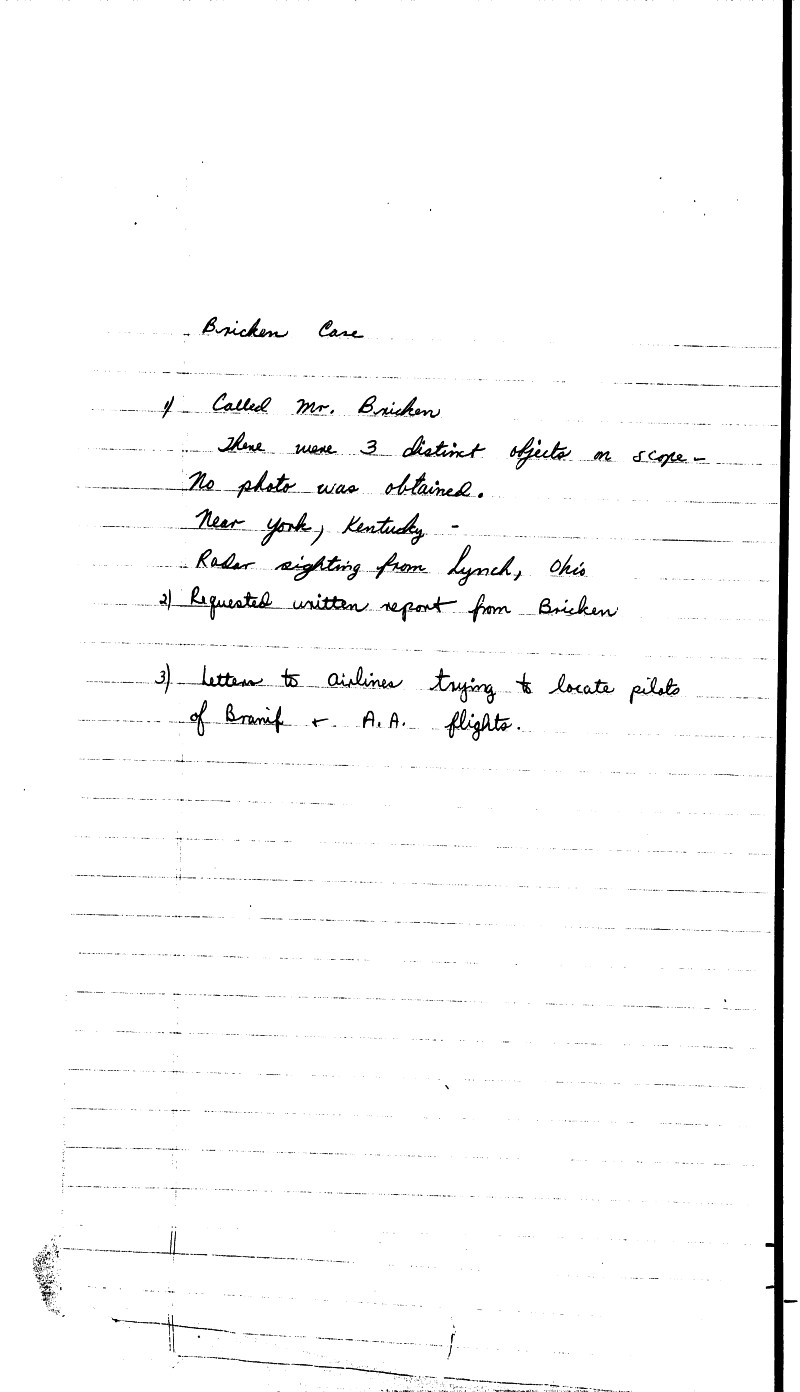 Bricken Case
1) Called Mr. Bricken
There were 3 distinct objects on scope -
No photo was obtained.
Near York, Kentucky -
Radar sighting from Lynch, Ohio
2) Requested written report from Bricken
3) Letters to airlines trying to locate pilots
of Branif + A.A. flights.